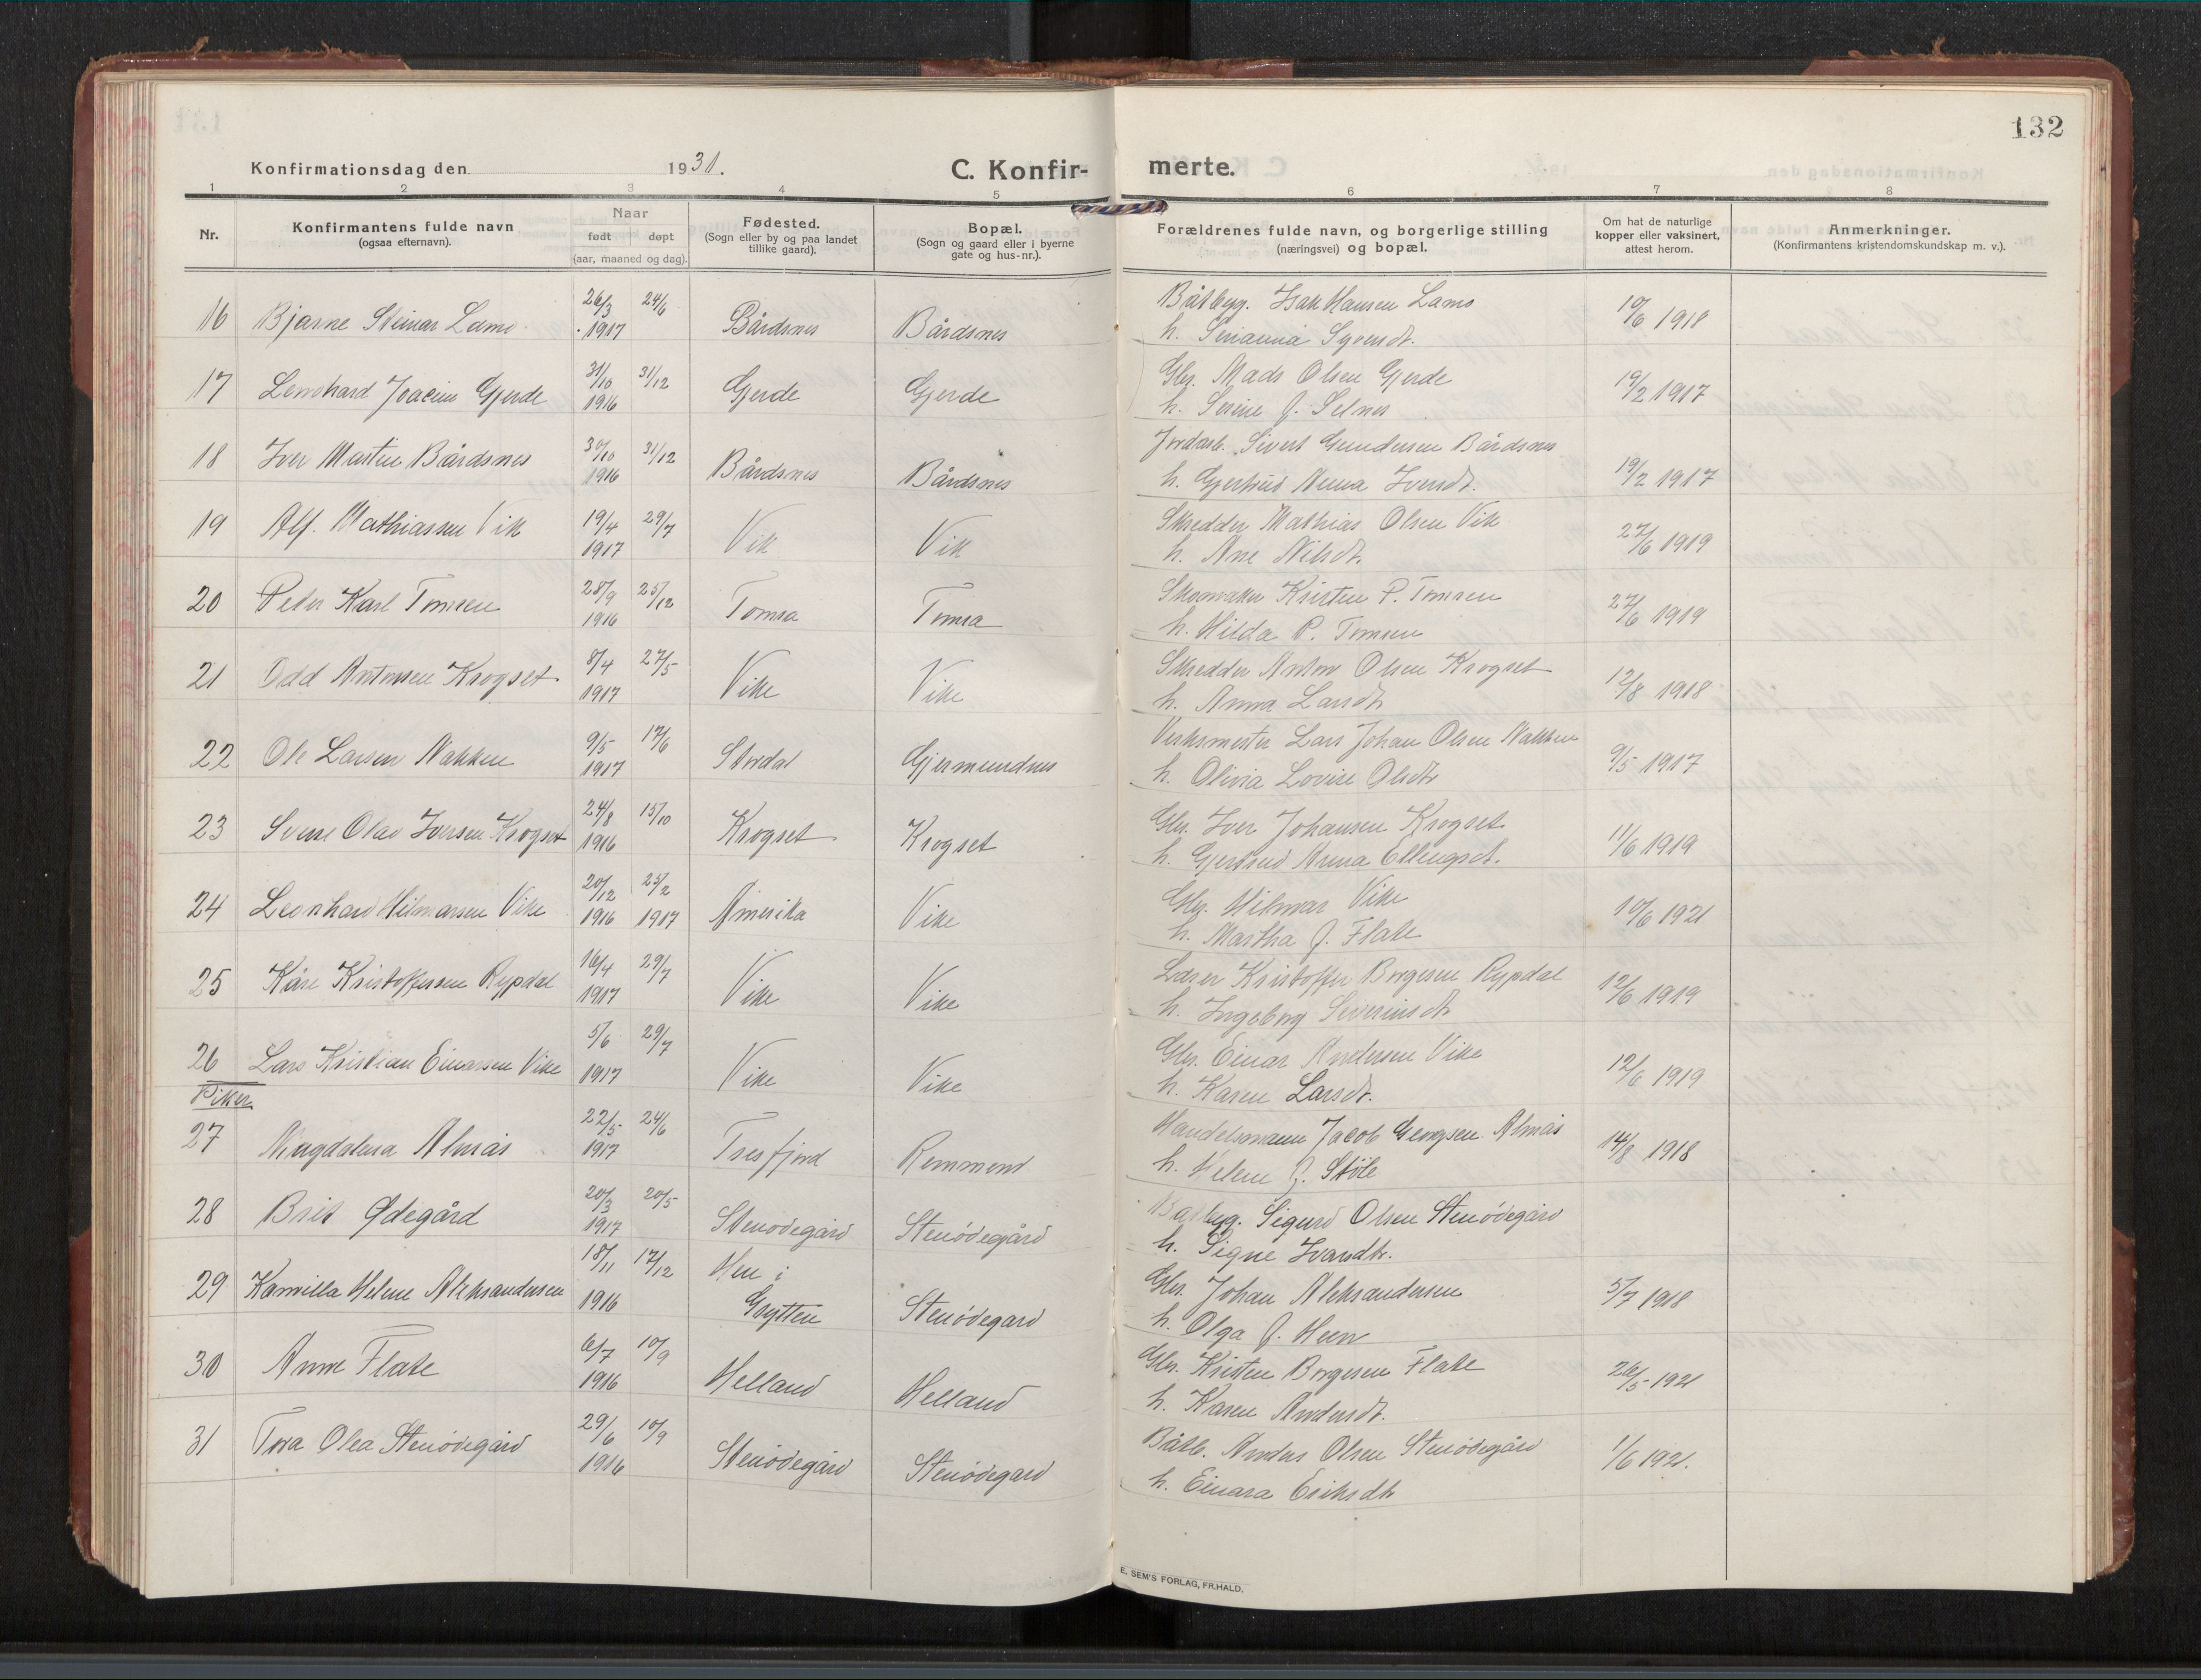 132
Konfirmationsdag den 1931. C. Konfir- merte.
1 2 3 4 5 6 7 8
Nr.
Konfirmantens fulde navn
(ogsaa efternavn).
Naar
født døpt
(aar, maaned og dag).
Fødested.
(Sogn eller by og paa landet
tillike gaard).
Bopæl.
(Sogn og gaard eller i byerne
gate og hus-nr.).
Forældrenes fulde navn, og borgerlige stilling
(næringsvei) og bopæl.
Om hat de naturlige
kopper eller vaksinert,
attest herom.
Anmerkninger.
(Konfirmantens kristendomskundskap m. v.).
16 Bjarne Steinar Lamo 26/3 1917 24/6 Bårdsnes Bårdsnes Båtbyg. Isak Hansen Lamo 19/6 1918
h. Serianna Syvendt.
17 Leonhard Joacim Gjerde 31/10 1916 31/12 Gjerde Gjerde Gbr. Mads Olsen Gjerde 19/2 1917
h. Serine J. Selnes
18 Iver Martin Bårdsnes 30/10 1916 31/12 Bårdsnes Bårdsnes Jordarb. Sivert Gundersen Bårdsnes
h. Gjertrud Anna Iversdt. 19/2 1917
19 Alf. Mathiassen Vik 19/4 1917 29/7 Vik Vik Skredder Mathias Olsen Vik 27/6 1919
h. Ane Nilsdt.
20 Peder Karl Tomren 28/9 1916 25/12 Tomra Tomra Skomaker Kristen P. Tomren 27/6 1919
h. Hilda P. Tomren
21 Odd Antonsen Krogset 8/4 1917 27/5 Vike Vike Skredder Anton Olsen Krogset 12/8 1918
h. Anna Larsdt
22 Ole Larsen Nakken 9/5 1917 17/6 Stordal Gjermundnes Verksmester Lars Johan Olsen Nakken 9/5 1917
h. Olivia Lovise Olsdtr
23 Sverre Olav Iversen Krogset 24/8 1916 15/10 Krogset Krogset Gbr. Iver Johansen Krogset 11/6 1919
h. Gjertrud Anna Ellingsd.
24 Leonhard Hilmarsen Vike 20/12 1916 25/2 1917 Amerika Vike Gbr. Hilmar Vike 10/6 1921
h. Martha J. Flate
25 Kåre Kristoffersen Rypdal 16/4 1917 29/7 Vike Vike Lærer Kristoffer Borgesen Rypdal 12/6 1919
h. Ingeborg Severinsdt
26 Lars Kristian Einarsen Vike 5/6 1917 29/7 Vike Vike Gbr. Einar Andersen Vike 12/6 1919
h. Karen Larsdt.
Piker
27 Magdalena Almås 22/5 1917 24/6 Tresfjord Remmem Handelsmann Jacob Georgsen Almås 14/8 1918
h. Helene J. Støle
28 Brit Ødegård 20/3 1917 20/5 Stenødegård Stenødegård Båtbyg. Sigurd Olsen Stenødegård
h. Signe Ivarsdtr.
29 Kamilla Helene Aleksandersen 18/11 1916 17/12 Hen i
Grytten Stenødegard Gbr. Johan Aleksandersen 5/7 1918
h. Olga J. Heen
30 Anne Flate 6/7 1916 10/9 Helland Helland Gbr. Kristen Borgesen Flate 26/5 1921
h. Karen Andersdt.
31 Tora Olea Stenødegård 29/6 1916 10/9 Stenødegård Stenødegard Båtb. Anders Olsen Stenødegård 1/6 1921.
h. Einara Eriksdtr
E. SEM'S FORLAG, FR.HALD.